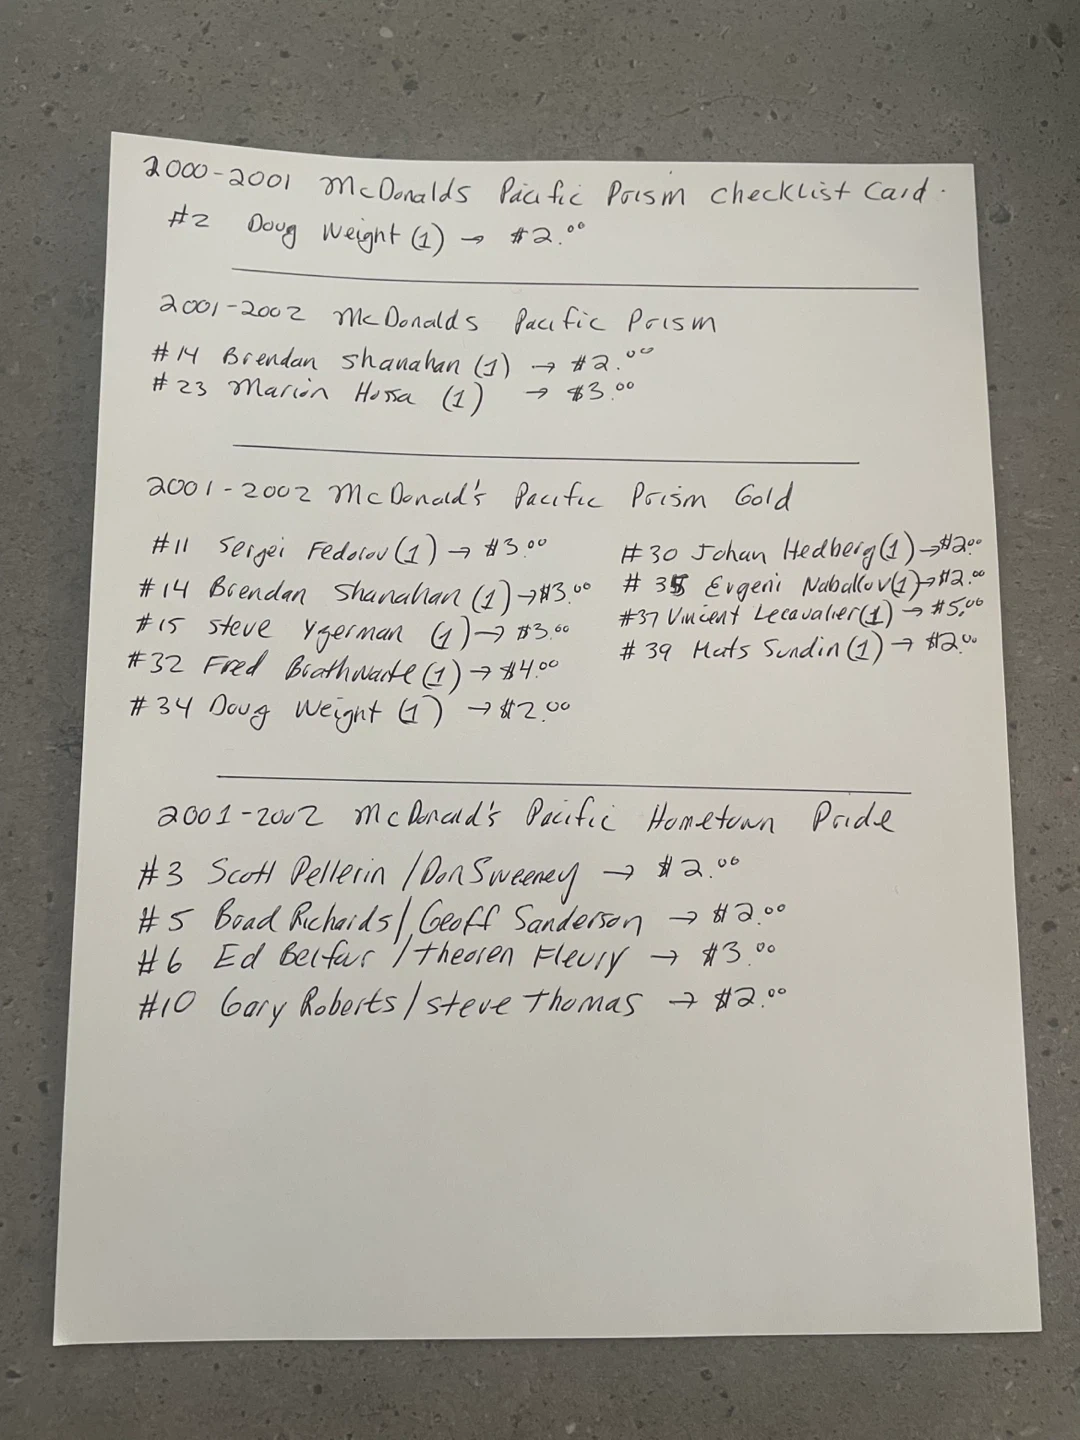 2000-2001 McDonalds Pacific Prism Checklist Card.
#2 Doug Weight (1) → $2.00
2001-2002 McDonalds Pacific Prism
#14 Brendan Shanahan (1) → $2.00
#23 Marion Hossa (1) → $3.00
2001-2002 McDonald's Pacific Prism Gold
#11 Sergei Fedorov (1) → $3.00
#14 Brendan Shanahan (1) → $3.00
#15 Steve Ygerman (1) → $3.00
#32 Fred Brathwaite (1) → $4.00
#34 Doug Weight (1) → $2.00
#30 Johan Hedberg (1) → $2.00
#35 Evgeni Nabakov (1) → $2.00
#37 Vincent Lecavalier (1) → $5.00
#39 Mats Sundin (1) → $2.00
2001-2002 McDonald's Pacific Hometown Pride
#3 Scott Pellerin / Don Sweeney → $2.00
#5 Brad Richards / Geoff Sanderson → $2.00
#6 Ed Belfour / Theoren Fleury → $3.00
#10 Gary Roberts / Steve Thomas → $2.00